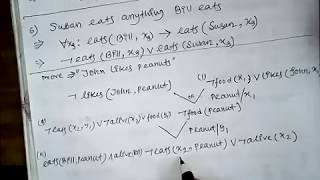 5) Susan eats anything Bill eats
⇒ ∀x₃: eats(Bill, x₃) → eats(Susan, x₃)
⇒ ¬eats(Bill, x₃) ∨ eats(Susan, x₃)
prove ⇒ "John likes Peanuts"
¬likes (John, Peanut) (1) ¬food(x₁) ∨ likes(John, x₁)
Peanut/x₁
(4) ¬eats(x₂, y₁) ∨ ¬alive(x₂) ∨ food(y₁) ¬food(Peanut)
Peanut/y₁
eats(Bill, Peanut) ∧ alive(Bill) ¬eats(x₂, Peanut) ∨ ¬alive(x₂)